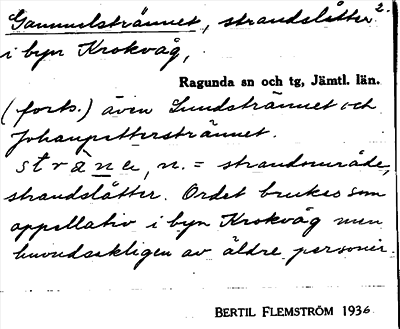 Gammelstrännet, strandslåtter 2.
i byn Krokvåg,
Ragunda sn och tg, Jämtl. län.
(forts.) även Lundstrännet och
Johanpetterstrännet.
strä̀ne, n. = strandområde,
strandslåtter. Ordet brukas som
appellativ i byn Krokvåg men
huvudsakligen av äldre personer.
BERTIL FLEMSTRÖM 1936